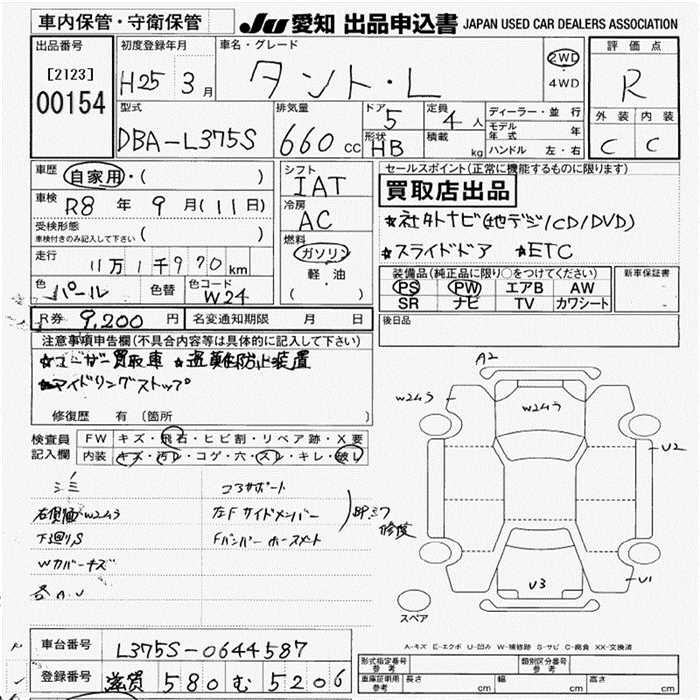 車内保管・守衛保管
JU 愛知 出品申込書 JAPAN USED CAR DEALERS ASSOCIATION
出品番号
[2123]
00154
初度登録年月
H25 3月
車名・グレード
タント・L
2WD
4WD
評価点
R
外装 内装
C C
型式
DBA-L375S
排気量
660 cc
ドア
5
定員
4人
形状
HB
積載
kg
ディーラー・並行
モデル年式 年
ハンドル 左・右
車歴
自家用・( )
車検
R8年 9月(11日)
受検形態
車検付きのみ記入して下さい ( )
走行
11万1千970km
色
パール
色替
色コード
W24
シフト
IAT
冷房
AC
燃料
ガソリン
軽・油
( )
セールスポイント(正常に機能するものに限ります)
買取店出品
★社外ナビ(地デジ/CD/DVD)
★スライドドア ★ETC
装備品(純正品に限り○をつけてください)
PS PW エアB AW
SR ナビ TV カワシート
新車保証書
R券 9,200円
名変通知期限 月 日
後日品
注意事項申告欄(不具合内容等は具体的に記入して下さい)
★ユーザー買取車 ★逸走防止装置
★アイドリングストップ
修復歴 有〔箇所
検査員
記入欄
FW キズ・飛石・ヒビ割・リペア跡・X要
内装 キズ・汚レ・コゲ・穴・スレ・キレ・破レ
コアサポート
右側面W2450
左Fサイドメンバー
下廻りS
Fバンパーホースメント
修復
Wカバーキズ
各A.U
A2
U2
U3
U1
スペア
A-キズ E-エクボ U-凹み W-補修跡 S-サビ C-腐食 XX-交換済
車台番号
L375S-0644587
登録番号
滋賀 580 む 5206
形式指定番号
参考
類別区分番号
参考
車庫証明用
参考
長さ cm
幅 cm
高さ cm